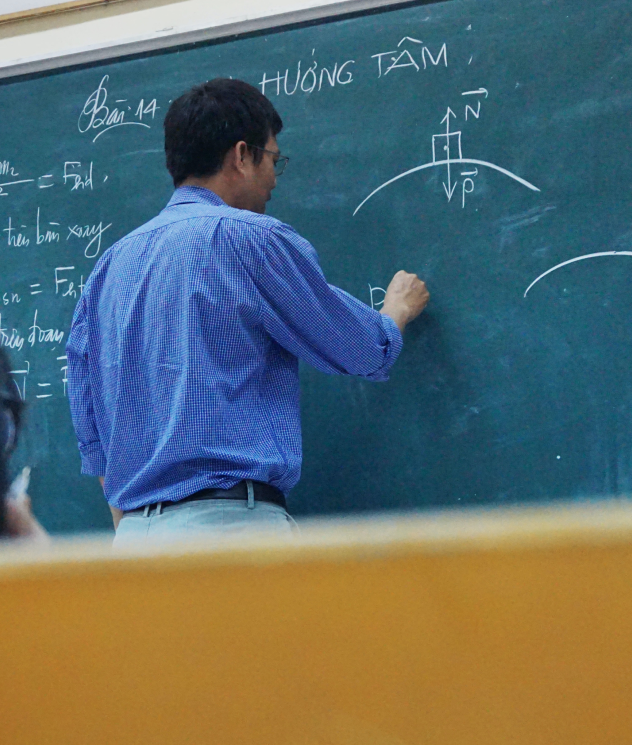 Bài 14 HƯỚNG TÂM
N
P
= Fhd.
trên bàn xoay
= Fht
trên đoạn
=
P